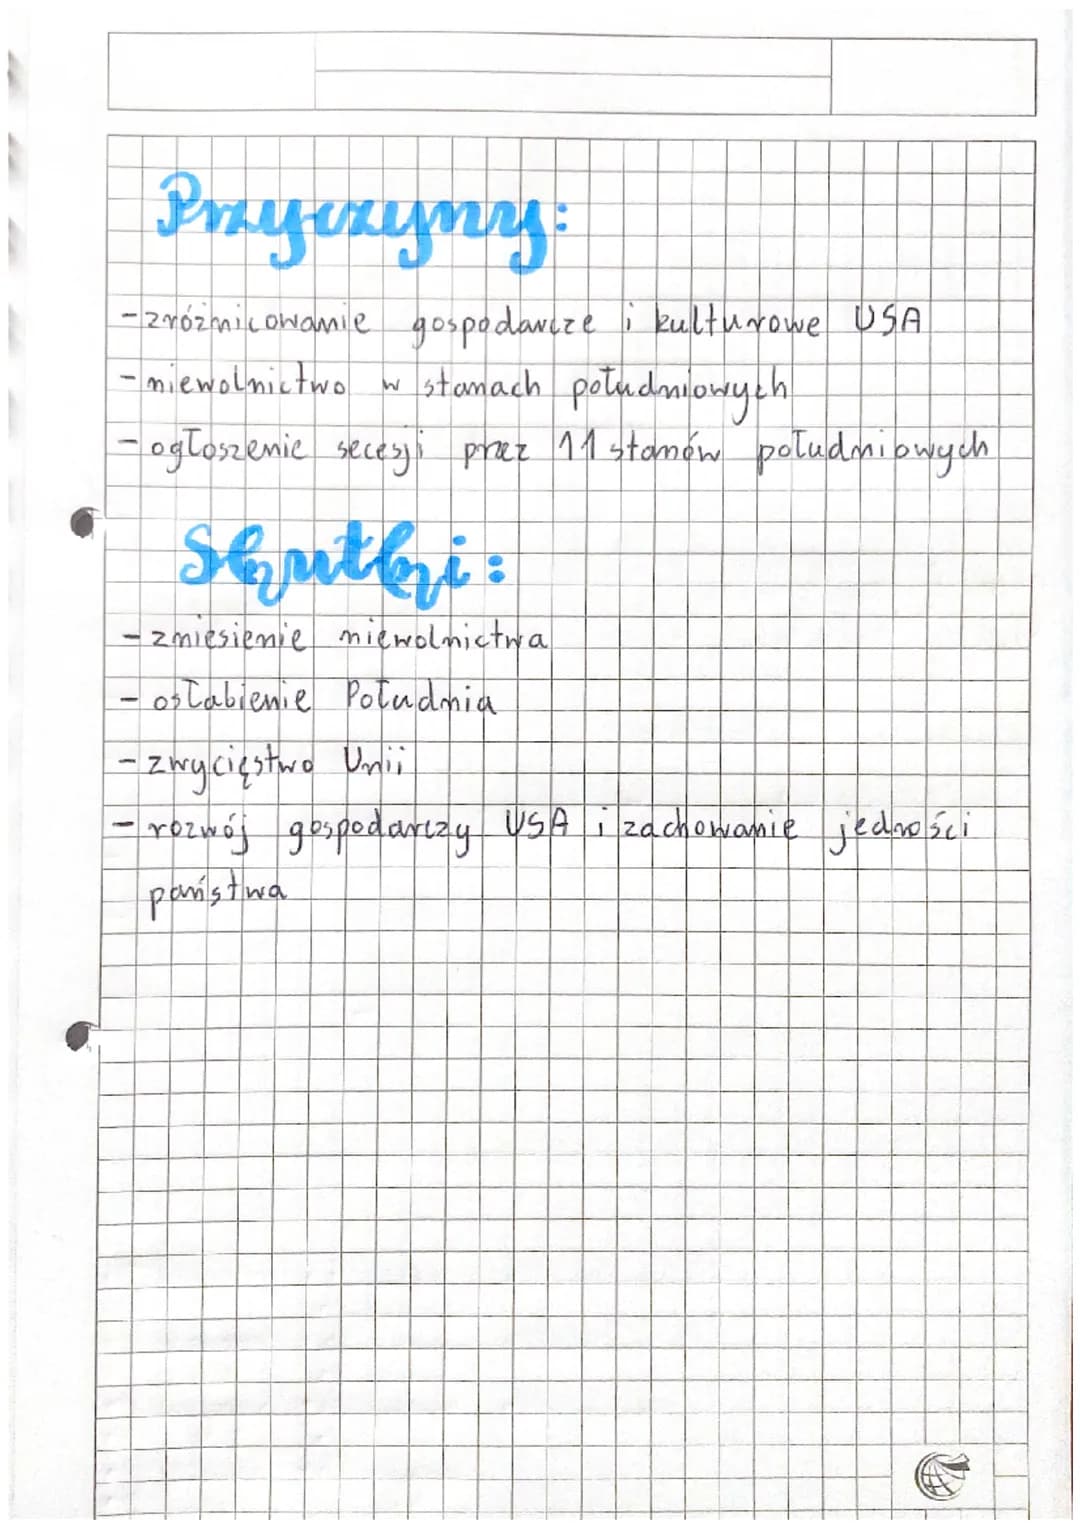 Przyczyny:
- zróżnicowanie gospodarcze i kulturowe USA
- niewolnictwo w stanach południowych
- ogłoszenie secesji przez 11 stanów południowych
Skutki:
- zniesienie niewolnictwa
- osłabienie Południa
- zwycięstwo Unii
- rozwój gospodarczy USA i zachowanie jedności
państwa